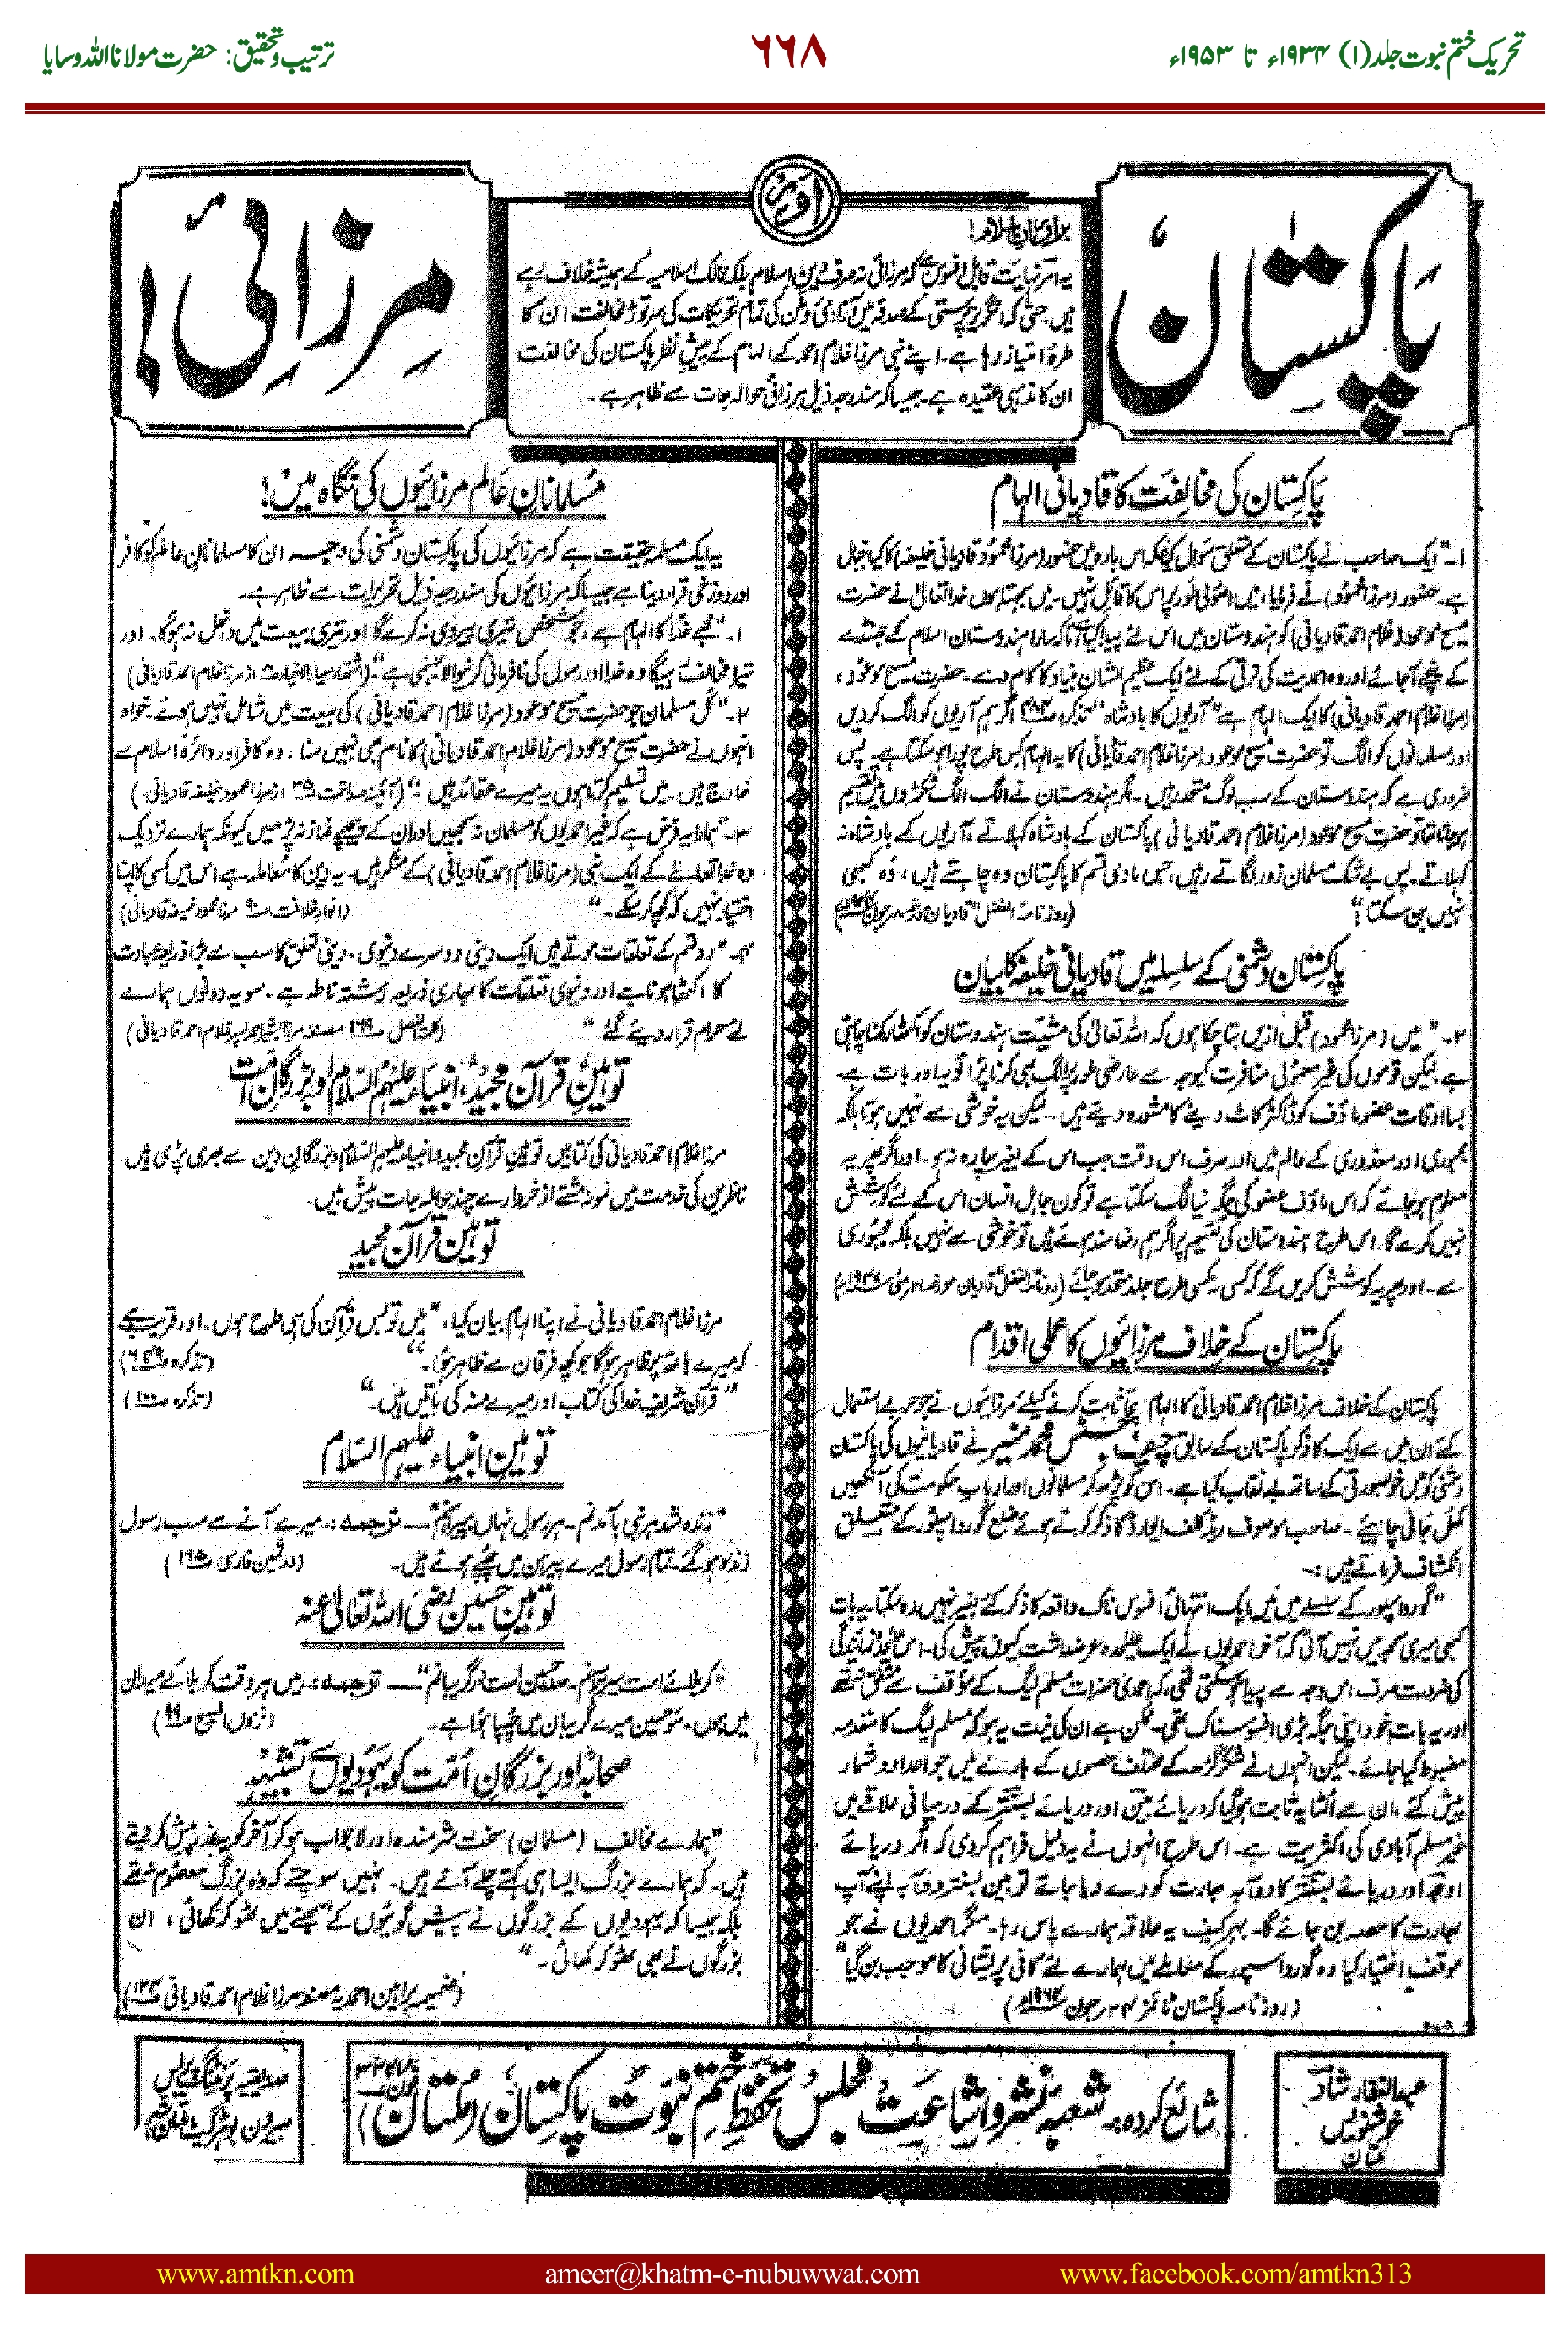 تحریک ختم نبوت جلد (۱) ۱۹۳۴ء تا ۱۹۵۳ء
۶۶۸
ترتیب و تحقیق: حضرت مولانا اللہ وسایا
پاکستان
اور
مرزائی!
برادران اسلام!
یہ امر نہایت قابل افسوس ہے کہ مرزائی نہ صرف دین اسلام بلکہ ممالک اسلامیہ کے ہمیشہ خلاف رہے
ہیں۔ حتیٰ کہ انگریز پرستی کے صدقہ میں آزادی وطن کی تمام تحریکات کی سرتوڑ مخالفت ان کا
طرۂ امتیاز رہا ہے۔ اپنے نبی مرزا غلام احمد کے الہام کے پیش نظر پاکستان کی مخالفت
ان کا مذہبی عقیدہ ہے۔ جیسا کہ مندرجہ ذیل مرزائی حوالہ جات سے ظاہر ہے۔
پاکستان کی مخالفت کا قادیانی الہام
۱۔ "ایک صاحب نے پاکستان کے متعلق سوال کیا کہ اس بارہ میں حضور (مرزا محمود قادیانی خلیفہ) کا کیا خیال
ہے۔ حضور (مرزا محمود) نے فرمایا، میں اصولی طور پر اس کا قائل نہیں۔ میں سمجھتا ہوں خدا تعالیٰ نے حضرت
مسیح موعود (غلام احمد قادیانی) کو ہندوستان میں اس لئے پیدا کیا تاکہ سارا ہندوستان اسلام کے جھنڈے
کے نیچے آجائے اور وہ احمدیت کی ترقی کے لئے ایک عظیم الشان بنیاد کا کام دے۔ حضرت مسیح موعود،
(مرزا غلام احمد قادیانی) کا ایک الہام ہے "آریوں کا بادشاہ" تذکرہ اگر ہم آریوں کو الگ کردیں
اور مسلمانوں کو الگ تو حضرت مسیح موعود (مرزا غلام احمد قادیانی) کا یہ الہام کس طرح پورا ہوسکتا ہے۔ پس
ضروری ہے کہ ہندوستان کے سب لوگ متحد رہیں۔ اگر ہندوستان نے الگ الگ ٹکڑوں میں تقسیم
ہوجانا تھا تو حضرت مسیح موعود (مرزا غلام احمد قادیانی) پاکستان کے بادشاہ کہلاتے، آریوں کے بادشاہ نہ
کہلاتے۔ پس بے شک مسلمان زور لگاتے رہیں، جس مادی قسم کا پاکستان وہ چاہتے ہیں، وہ کبھی
نہیں بن سکتا" (روزنامہ الفضل قادیان مورخہ جون
پاکستان دشمنی کے سلسلہ میں قادیانی خلیفہ کا بیان
۲۔ "میں (مرزا محمود) قبل ازیں بتا چکا ہوں کہ اللہ تعالیٰ کی مشیت ہندوستان کو اکٹھا رکھنا چاہتی
ہے لیکن قوموں کی غیر معمولی منافرت کیوجہ سے عارضی طور پر الگ بھی کرنا پڑا تو یہ اور بات ہے۔
بسا اوقات عضو ماؤف کو ڈاکٹر کاٹ دینے کا مشورہ دیتے ہیں۔ لیکن یہ خوشی سے نہیں ہوتا بلکہ
مجبوری اور معذوری کے عالم میں اور صرف اس وقت جب اس کے بغیر چارہ نہ ہو۔ اور اگر پھر یہ
معلوم ہوجائے کہ اس ماؤف عضو کی جگہ نیا لگ سکتا ہے تو کون جاہل انسان اس کے لئے کوشش
نہیں کرے گا۔ اس طرح ہندوستان کی تقسیم پر اگر ہم رضامند ہوئے ہیں تو خوشی سے نہیں بلکہ مجبوری
سے۔ اور پھر یہ کوشش کریں گے کہ کسی نہ کسی طرح جلد متحد ہوجائے (روزنامہ الفضل قادیان مورخہ
پاکستان کے خلاف مرزائیوں کا عملی اقدام
پاکستان کے خلاف مرزا غلام احمد قادیانی کا الہام سچا ثابت کرنے کیلئے مرزائیوں نے جو حربے استعمال
کئے ان میں سے ایک کا ذکر پاکستان کے سابق چیف جسٹس محمد منیر نے قادیانیوں کی پاکستان
دشمنی کو جس خوبصورتی کے ساتھ بے نقاب کیا ہے۔ اس کو پڑھ کر مسلمانوں اور ارباب حکومت کی آنکھیں
کھل جانی چاہئے۔ صاحب موصوف ریڈکلف ایوارڈ کا ذکر کرتے ہوئے ضلع گورداسپور کے متعلق
انکشاف فرماتے ہیں:۔
"گورداسپور کے سلسلے میں میں ایک انتہائی افسوس ناک واقعہ کا ذکر کئے بغیر نہیں رہ سکتا یہ بات
کبھی میری سمجھ میں نہیں آئی کہ آخر احمدیوں نے ایک علیحدہ عرضداشت کیوں پیش کی۔ اس علیحدہ نمائندگی
کی ضرورت صرف اس وجہ سے پیدا ہوسکتی تھی، کہ احمدی حضرات مسلم لیگ کے مؤقف سے متفق نہ تھے
اور یہ بات خود اپنی جگہ بڑی افسوسناک تھی۔ ممکن ہے ان کی نیت یہ ہو کہ مسلم لیگ کا مقدمہ
مضبوط کیا جائے۔ لیکن انہوں نے شکرگڑھ کے مختلف حصوں کے بارے میں جو اعداد و شمار
پیش کئے، ان سے الٹا یہ ثابت ہوگیا کہ دریائے بئین اور دریائے بسنتر کے درمیانی علاقے میں
غیر مسلم آبادی کی اکثریت ہے۔ اس طرح انہوں نے یہ دلیل فراہم کردی کہ اگر دریائے
اوجھ اور دریائے بسنتر کا دوآبہ بھارت کو دے دیا جائے تو بین بسنتر دوآبہ اپنے آپ
بھارت کا حصہ بن جائے گا۔ بہرکیف یہ علاقہ ہمارے پاس رہا۔ مگر احمدیوں نے جو
موقف اختیار کیا وہ گورداسپور کے معاملے میں ہمارے لئے کافی پریشانی کا موجب بن گیا"
(روزنامہ پاکستان ٹائمز ۲۴ جون ۱۹۶۴ء)
مسلمانانِ عالم مرزائیوں کی نگاہ میں!
یہ ایک مسلمہ حقیقت ہے کہ مرزائیوں کی پاکستان دشمنی کی وجہ ان کا مسلمانان عالم کو کافر
اور دوزخی قرار دینا ہے جیسا کہ مرزائیوں کی مندرجہ ذیل تحریرات سے ظاہر ہے۔
۱۔ "مجھے خدا کا الہام ہے، جو شخص تیری پیروی نہ کرے گا اور تیری بیعت میں داخل نہ ہوگا۔ اور
تیرا مخالف رہیگا وہ خدا اور رسول کی نافرمانی کرنیوالا جہنمی ہے"۔ (اشتہار معیار الاخیار از مرزا غلام احمد قادیانی)
۲۔ "کل مسلمان جو حضرت مسیح موعود (مرزا غلام احمد قادیانی) کی بیعت میں شامل نہیں ہوئے۔ خواہ
انہوں نے حضرت مسیح موعود (مرزا غلام احمد قادیانی) کا نام بھی نہیں سنا، وہ کافر اور دائرہ اسلام سے
خارج ہیں۔ میں تسلیم کرتا ہوں یہ میرے عقائد ہیں" (آئینہ صداقت ۳۵ از مرزا محمود خلیفہ قادیانی)
۳۔ "ہمارا یہ فرض ہے کہ غیر احمدیوں کو مسلمان نہ سمجھیں اور ان کے پیچھے نماز نہ پڑھیں کیونکہ ہمارے نزدیک
وہ خدا تعالےٰ کے ایک نبی (مرزا غلام احمد قادیانی) کے منکر ہیں۔ یہ دین کا معاملہ ہے اس میں کسی کا اپنا
اختیار نہیں کہ کچھ کرسکے۔" (انوار خلافت مرزا محمود خلیفہ قادیانی)
۴۔ "دو قسم کے تعلقات ہوتے ہیں ایک دینی دوسرے دنیوی۔ دینی تعلق کا سب سے بڑا ذریعہ عبادت
کا اکٹھا ہونا ہے اور دنیوی تعلقات کا بھاری ذریعہ رشتہ ناطہ ہے۔ سو یہ دونوں ہمارے
لئے حرام قرار دیئے گئے" (کلمۃ الفصل ۱۶۹ مصنفہ مرزا بشیر احمد پسر غلام احمد قادیانی)
توہینِ قرآن مجید، انبیاء علیہم السلام اور بزرگانِ امت
مرزا غلام احمد قادیانی کی کتابیں توہین قرآن مجید و انبیاء علیہم السلام و بزرگان دین سے بھری پڑی ہیں۔
ناظرین کی خدمت میں نمونہ مشتے از خروارے چند حوالہ جات پیش ہیں۔
توہین قرآن مجید
مرزا غلام احمد قادیانی نے اپنا الہام بیان کیا، "میں تو بس قرآن کی ہی طرح ہوں۔ اور قریب ہے
کہ میرے ہاتھ پر ظاہر ہوگا جو کچھ فرقان سے ظاہر ہوا"۔ (تذکرہ
"قرآن شریف خدا کی کتاب اور میرے منہ کی باتیں ہیں۔" (تذکرہ
توہین انبیاء علیہم السلام
"زندہ شد ہر نبی بآمدنم۔ ہر رسول نہاں بہ پیرہنم"۔ ترجمہ:۔ میرے آنے سے سب رسول
زندہ ہوگئے۔ تمام رسول میرے پیرہن میں چھپے ہوئے ہیں۔ (درثمین فارسی ۱۶۵)
توہین حسین رضی اللہ تعالیٰ عنہ
"کربلائے است سیر ہر آنم۔ صد حسین است در گریبانم"۔ ترجمہ:۔ میں ہر وقت کربلا کے میدان
میں ہوں۔ سو حسین میرے گریبان میں چھپا ہوا ہے۔ (نزول المسیح ۹۹)
صحابہؓ اور بزرگان امت کو یہودیوں سے تشبیہہ
"ہمارے مخالف (مسلمان) سخت شرمندہ اور لاجواب ہو کر آخر کو یہ عذر پیش کر دیتے
ہیں۔ کہ ہمارے بزرگ ایسا ہی کہتے چلے آئے ہیں۔ نہیں سوچتے کہ وہ بزرگ معصوم نہ تھے
بلکہ جیسا کہ یہودیوں کے بزرگوں نے پیش گوئیوں کے سمجھنے میں ٹھوکر کھائی، ان
بزرگوں نے بھی ٹھوکر کھائی۔"
(ضمیمہ براہین احمدیہ مصنفہ مرزا غلام احمد قادیانی
عبدالغفار شاد
خوشنویس
ملتان
شائع کردہ:۔ شعبہ نشر و اشاعت مجلس تحفظ ختم نبوت پاکستان (ملتان)
صدیقیہ پرنٹنگ پریس
بیرون بوہڑ گیٹ ملتان
www.amtkn.com
ameer@khatm-e-nubuwwat.com
www.facebook.com/amtkn313